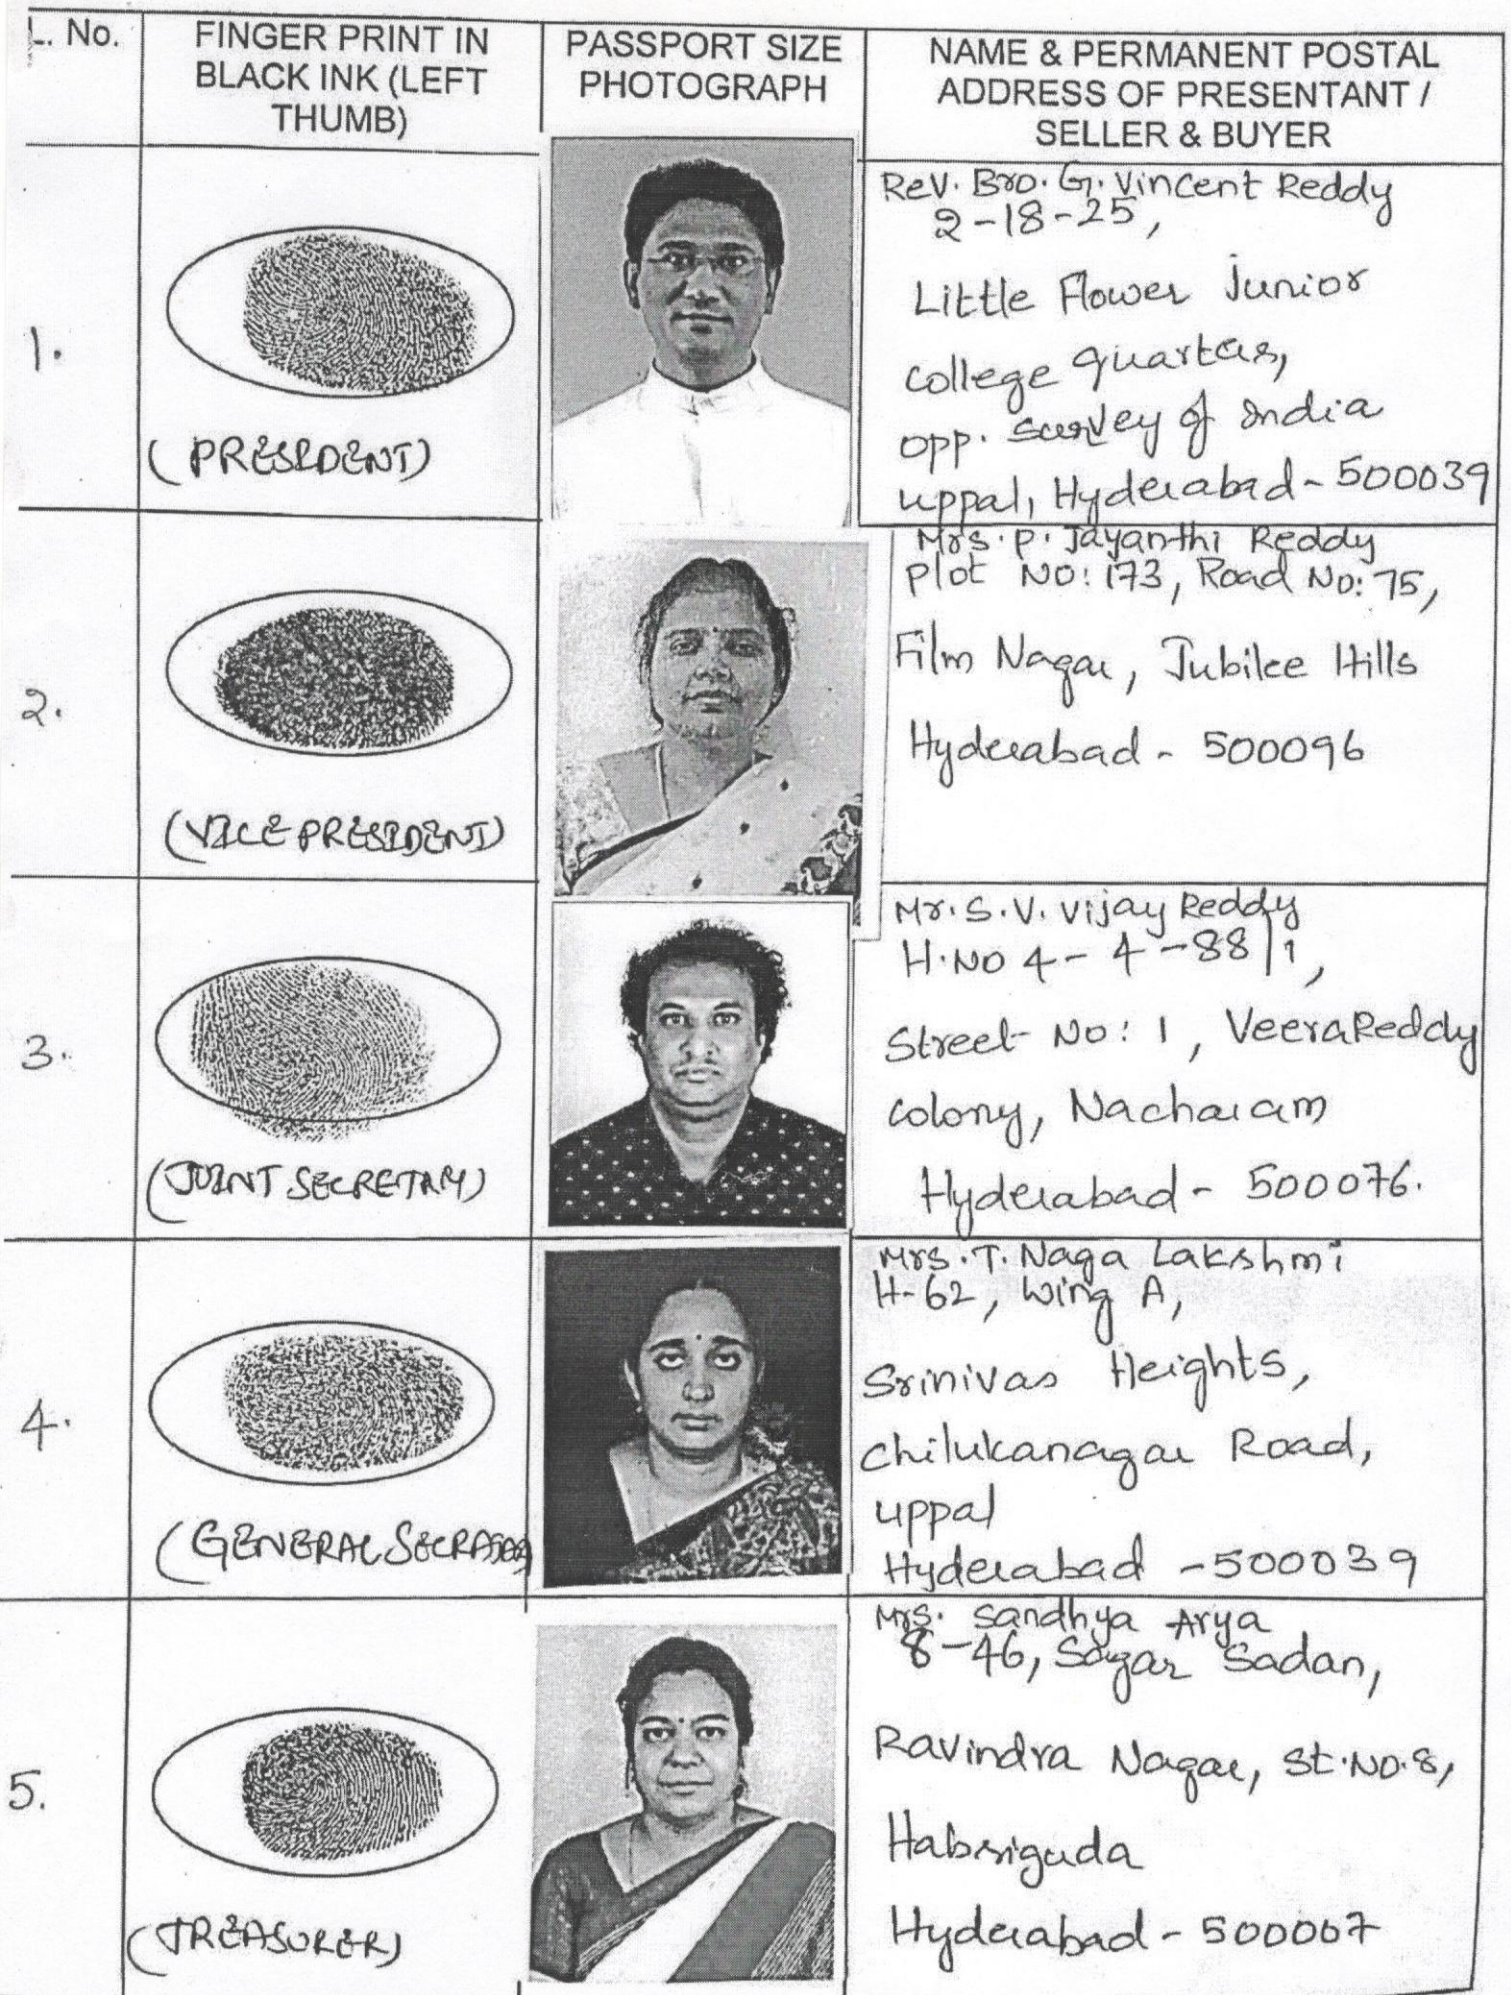 L. No.
FINGER PRINT IN
BLACK INK (LEFT
THUMB)
PASSPORT SIZE
PHOTOGRAPH
NAME & PERMANENT POSTAL
ADDRESS OF PRESENTANT /
SELLER & BUYER
1.
(PRESIDENT)
Rev. Bro. G. Vincent Reddy
2-18-25,
Little Flower Junior
College Quarters,
Opp. Survey of India
Uppal, Hyderabad - 500039
2.
(VICE PRESIDENT)
Mrs. P. Jayanthi Reddy
Plot No: 173, Road No: 75,
Film Nagar, Jubilee Hills
Hyderabad - 500096
3.
(JOINT SECRETARY)
Mr. S. V. Vijay Reddy
H.No 4-4-88/1,
Street No: 1, VeeraReddy
Colony, Nacharam
Hyderabad - 500076.
4.
(GENERAL
Mrs. T. Naga Lakshmi
H-62, Wing A,
Srinivas Heights,
Chilukanagar Road,
Uppal
Hyderabad - 500039
5.
(TREASURER)
Mrs. Sandhya Arya
8-46, Sagar Sadan,
Ravindra Nagar, St. No. 8,
Habsiguda
Hyderabad - 500007